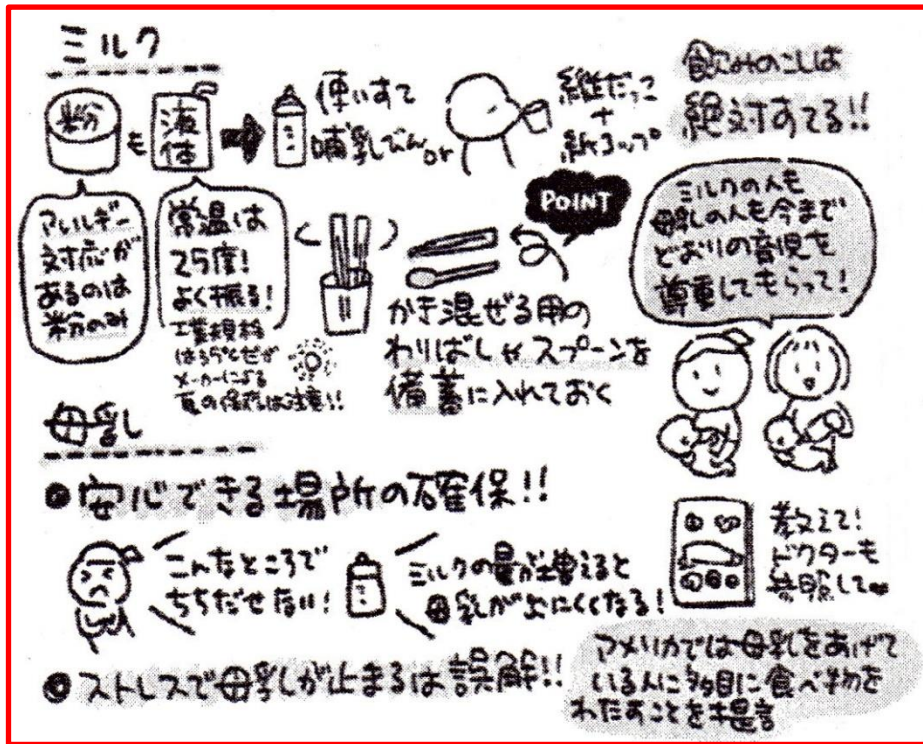 ミルク
粉
も
液体
使いすて
哺乳びん
or
紙コップ
飲みのこしは
絶対すてる!!
アレルギー
対応が
あるのは
粉のみ
常温は
25度!
よく振る!
工業規格
メーカーによる
夏の保存は注意!!
POINT
かき混ぜる用の
わりばしやスプーンを
備蓄に入れておく
ミルクの人も
母乳の人も今まで
どおりの育児を
尊重してもらって!
母乳
安心できる場所の確保!!
こんなところで
ちちだせない!
ミルクの量が増えると
母乳が出にくくなる!
教えて!
ドクターも
参照して
ストレスで母乳が止まるは誤解!!
アメリカでは母乳をあげて
いる人に多目に食べ物を
わたすことを提言